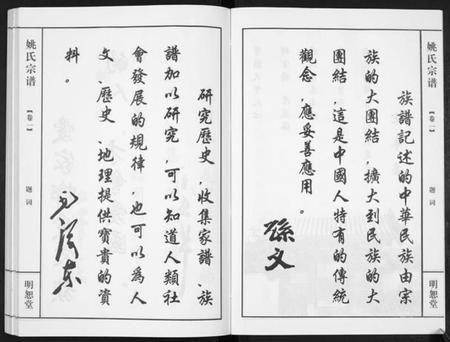 姚氏宗谱
【卷一】
题词
明恕堂
族譜記述的中華民族由宗
族的大团結，擴大到民族的大
团結，這是中國人特有的傳統
觀念，應妥善應用。
孫文
研究歷史，收集家譜、族
譜加以研究，可以知道人類社
會發展的規律，也可以為人
文、歷史、地理提供寳貴的資
料。
毛澤东
姚氏宗谱
【卷一】
题词
明恕堂